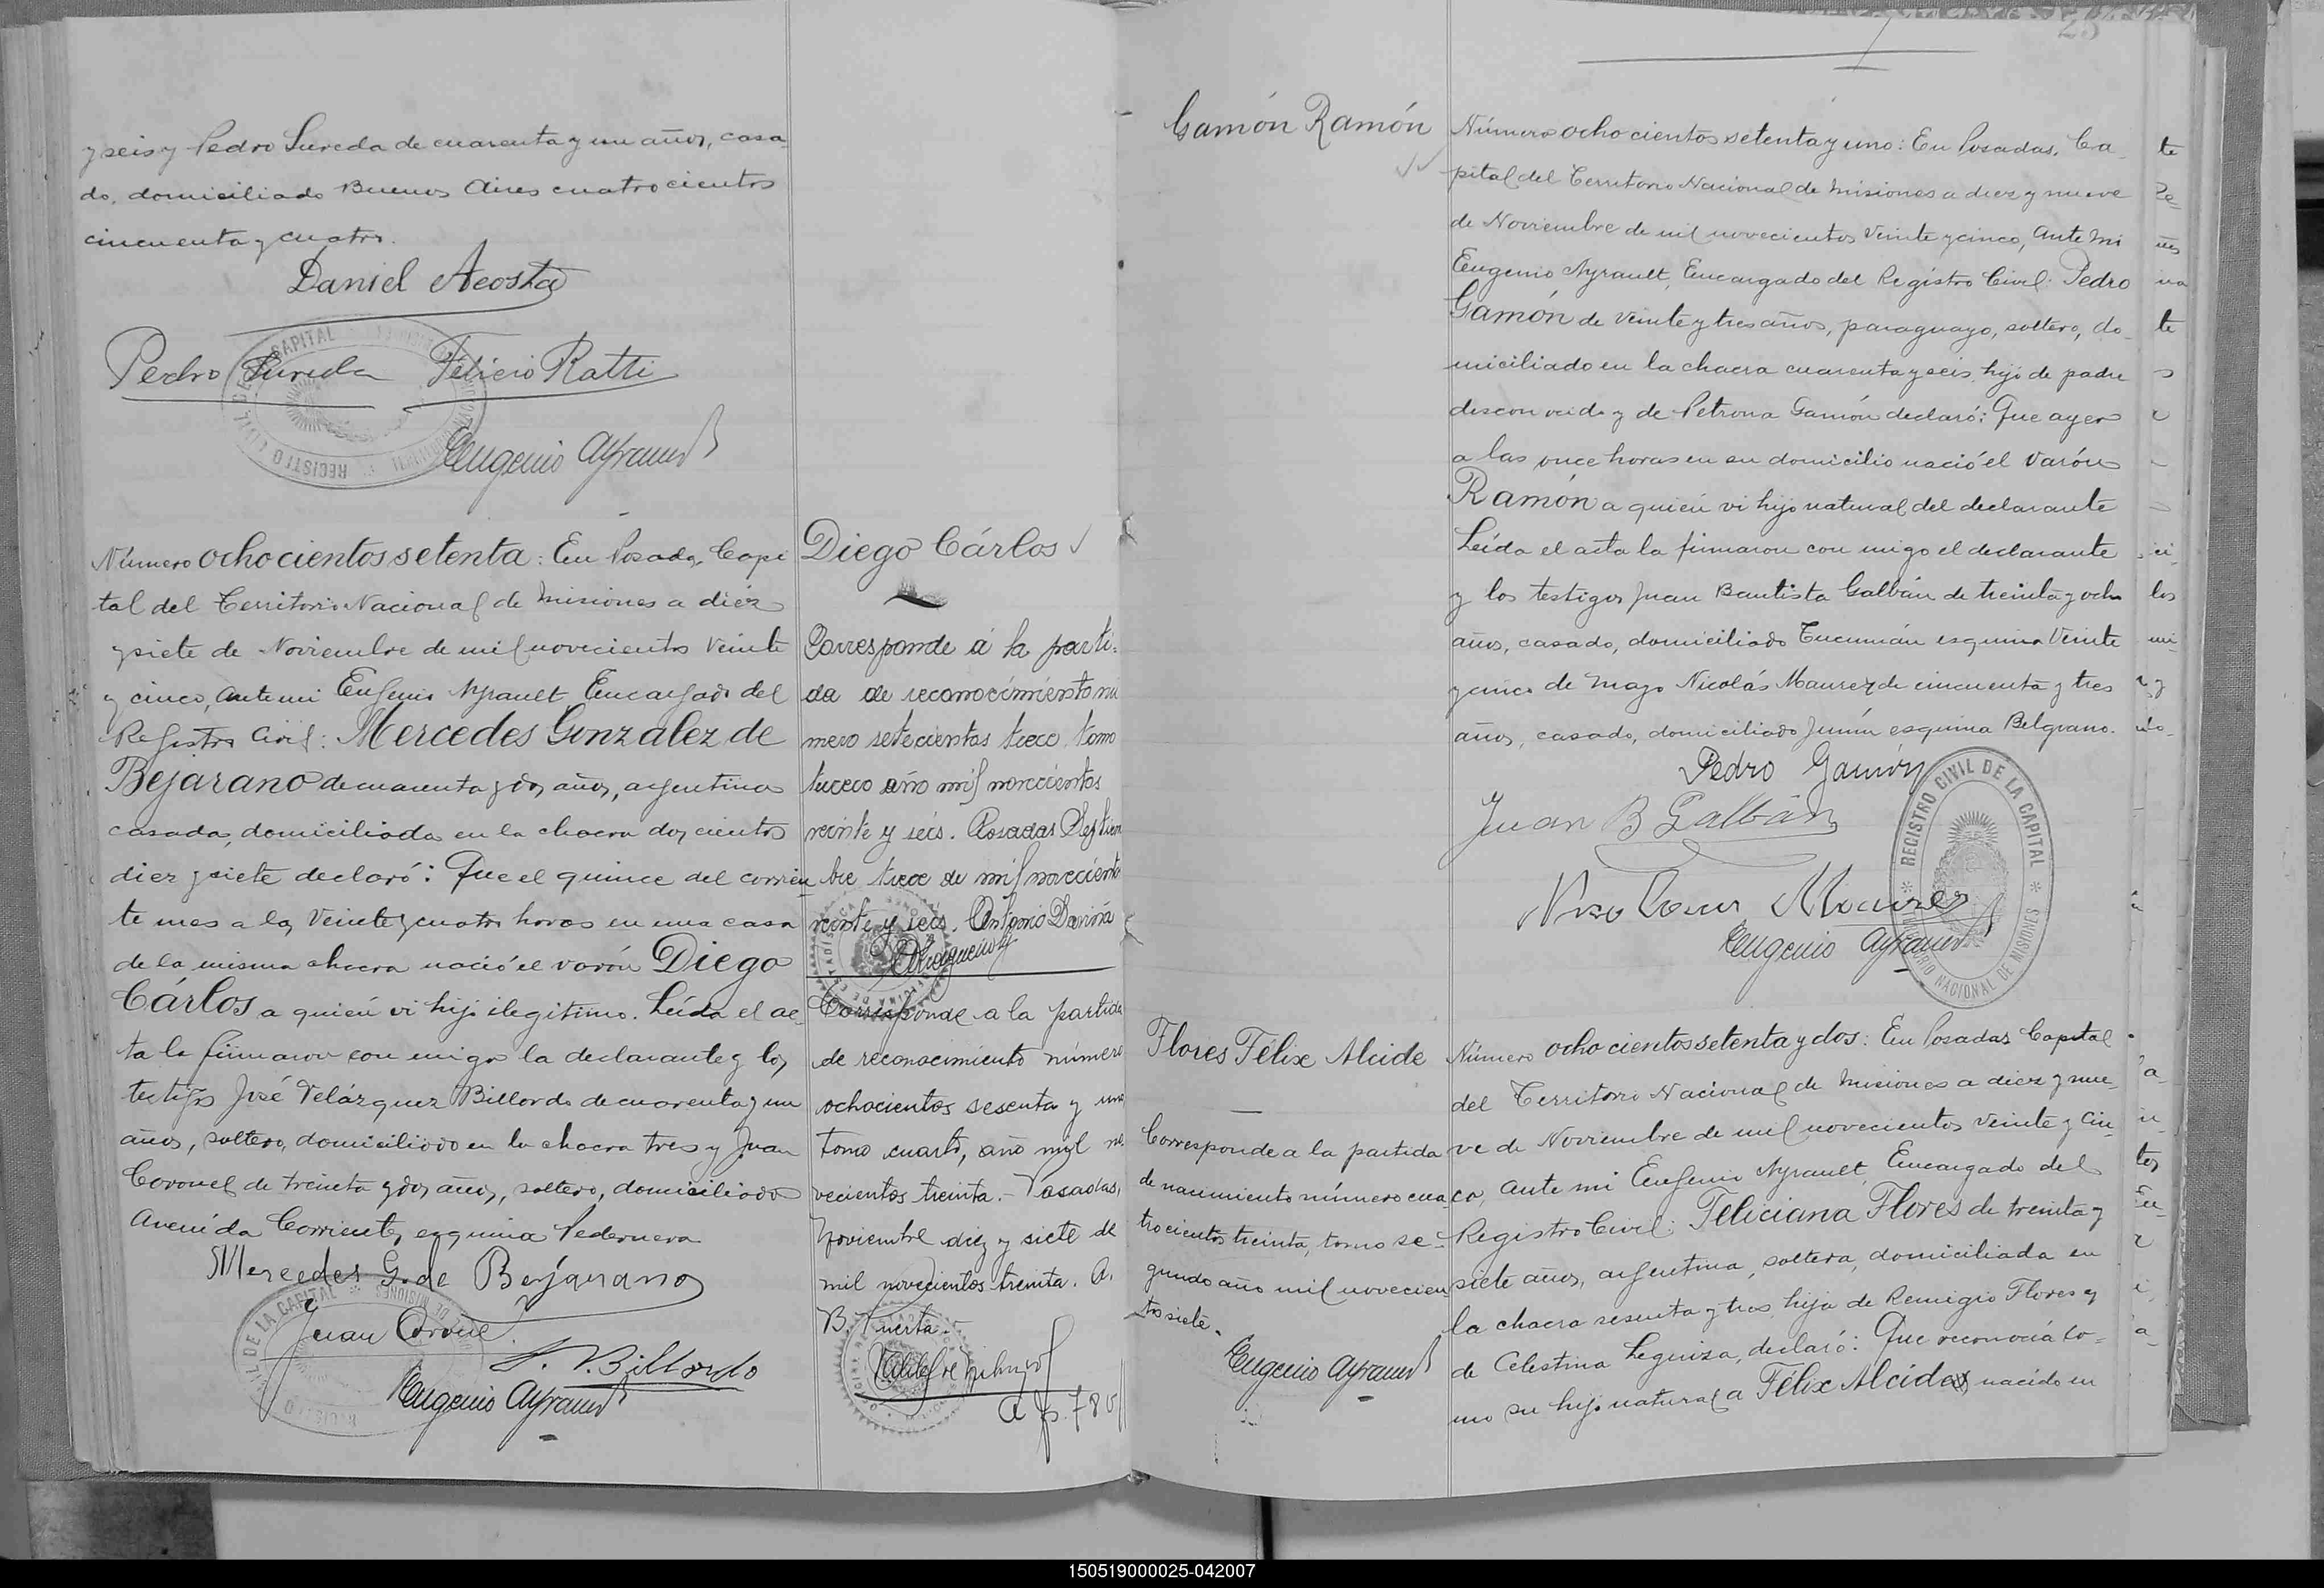 y seis y Pedro Sureda de cuarenta y un años, casa-
do, domiciliado Buenos Aires cuatrocientos
cincuenta y cuatro.
Daniel Acosta
Pedro Sureda Felicio Ratti
Eugenio Ayrault
Número ochocientos setenta: En Posadas, Capi
tal del Territorio Nacional de Misiones a diez
y siete de Noviembre de mil novecientos veinte
y cinco, ante mi Eugenio Ayrault, Encargado del
Registro Civil: Mercedes Gonzalez de
Bejarano de cuarenta y dos años, argentina
casada, domiciliada en la chacra dos cientos
diez y siete declaró: Que el quince del corrien
te mes a las veinte y cuatro horas en una casa
de la misma chacra nació el varón Diego
Cárlos a quién vi hijo ilegitimo. Leída el ac-
ta la firmaron con migo la declarante y los
testigos José Velázquez Billordo de cuarenta y un
años, soltero, domiciliado en la chacra tres y Juan
Coronel de treinta y dos años, soltero, domiciliado
Avenida Corrientes esquina Pedernera
Mercedes G. de Bejarano
Juan Coronel
J. V. Billordo
Eugenio Ayrault
Diego Cárlos
Corresponde á la parti-
da de reconocimiento nú
mero setecientos trece, tomo
tercero año mil novecientos
veinte y seis. Posadas Septiem
bre trece de mil novecientos
veinte y seis. Antonio Daviña
Corresponde a la partida
de reconocimiento número
ochocientos sesenta y uno
tomo cuarto, año mil no-
vecientos treinta.- Posadas,
Noviembre diez y siete de
mil novecientos treinta. A.
B. Puerta.-
Gamón Ramón
Número ochocientos setenta y uno: En Posadas, Ca-
pital del Territorio Nacional de Misiones a diez y nueve
de Noviembre de mil novecientos veinte y cinco, ante mi
Eugenio Ayrault, Encargado del Registro Civil: Pedro
Gamón de veinte y tres años, paraguayo, soltero, do-
miciliado en la chacra cuarenta y seis, hijo de padre
desconocido y de Petrona Gamón declaró: Que ayer
a las once horas en su domicilio nació el varón
Ramón a quién vi hijo natural del declarante
Leída el acta la firmaron con migo el declarante
y los testigos Juan Bautista Galbán de treinta y ocho
años, casado, domiciliado Tucumán esquina Veinte
y cinco de Mayo Nicolás Maurez de cincuenta y tres
años, casado, domiciliado Junín esquina Belgrano.
Pedro Gamón
Juan B Galbán
Nicolas Maurez
Eugenio Ayrault
REGISTRO CIVIL DE LA CAPITAL
TERRITORIO NACIONAL DE MISIONES
Flores Félix Alcide
Corresponde a la partida
de nacimiento número cua
trocientos treinta, tomo se-
gundo año mil novecien
tos siete.
Eugenio Ayrault
Número ochocientos setenta y dos: En Posadas Capital
del Territorio Nacional de Misiones a diez y nue-
ve de Noviembre de mil novecientos veinte y cin-
co, ante mi Eugenio Ayrault, Encargado del
Registro Civil: Feliciana Flores de treinta y
siete años, argentina, soltera, domiciliada en
la chacra sesenta y tres, hija de Remigio Flores y
de Celestina Leguiza, declaró: Que reconocía co-
mo su hijo natural a Félix Alcide nacido en
150519000025-042007